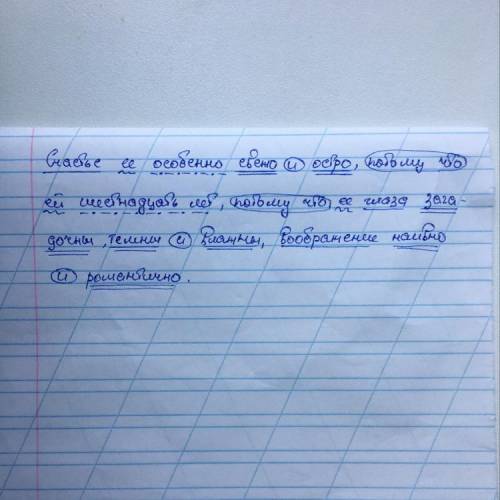 Счастье ее особенно свено и остро, потому что
ей шестнадцать лет, потому что ее глаза зага-
дочны, темны и влажны, воображение наивно
и романтично.